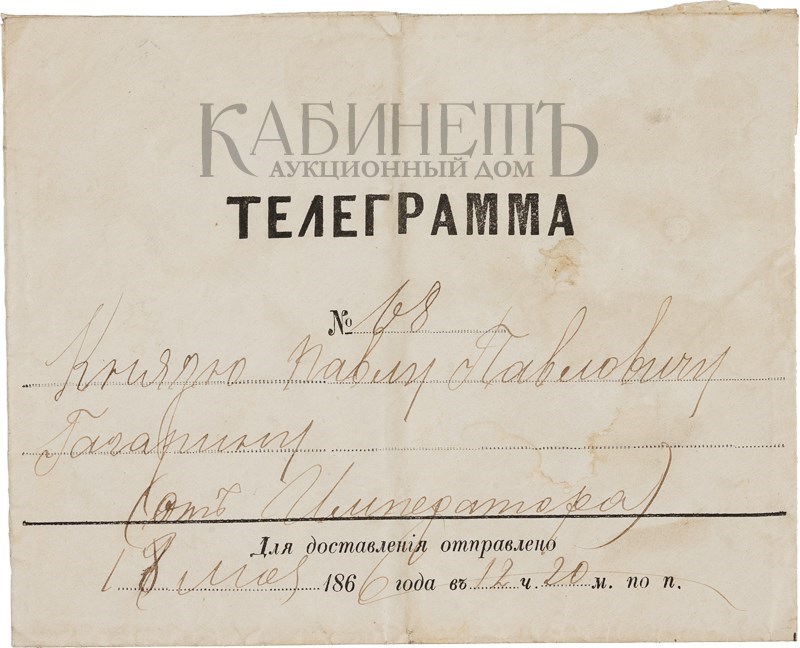 КАБИНЕТЪ
АУКЦИОННЫЙ ДОМ
ТЕЛЕГРАММА
№ 68
Князю Павлу Павловичу
Гагарину
(отъ Императора)
Для доставленія отправлено
18 мая 1866 года въ 12 ч. 20 м. по п.